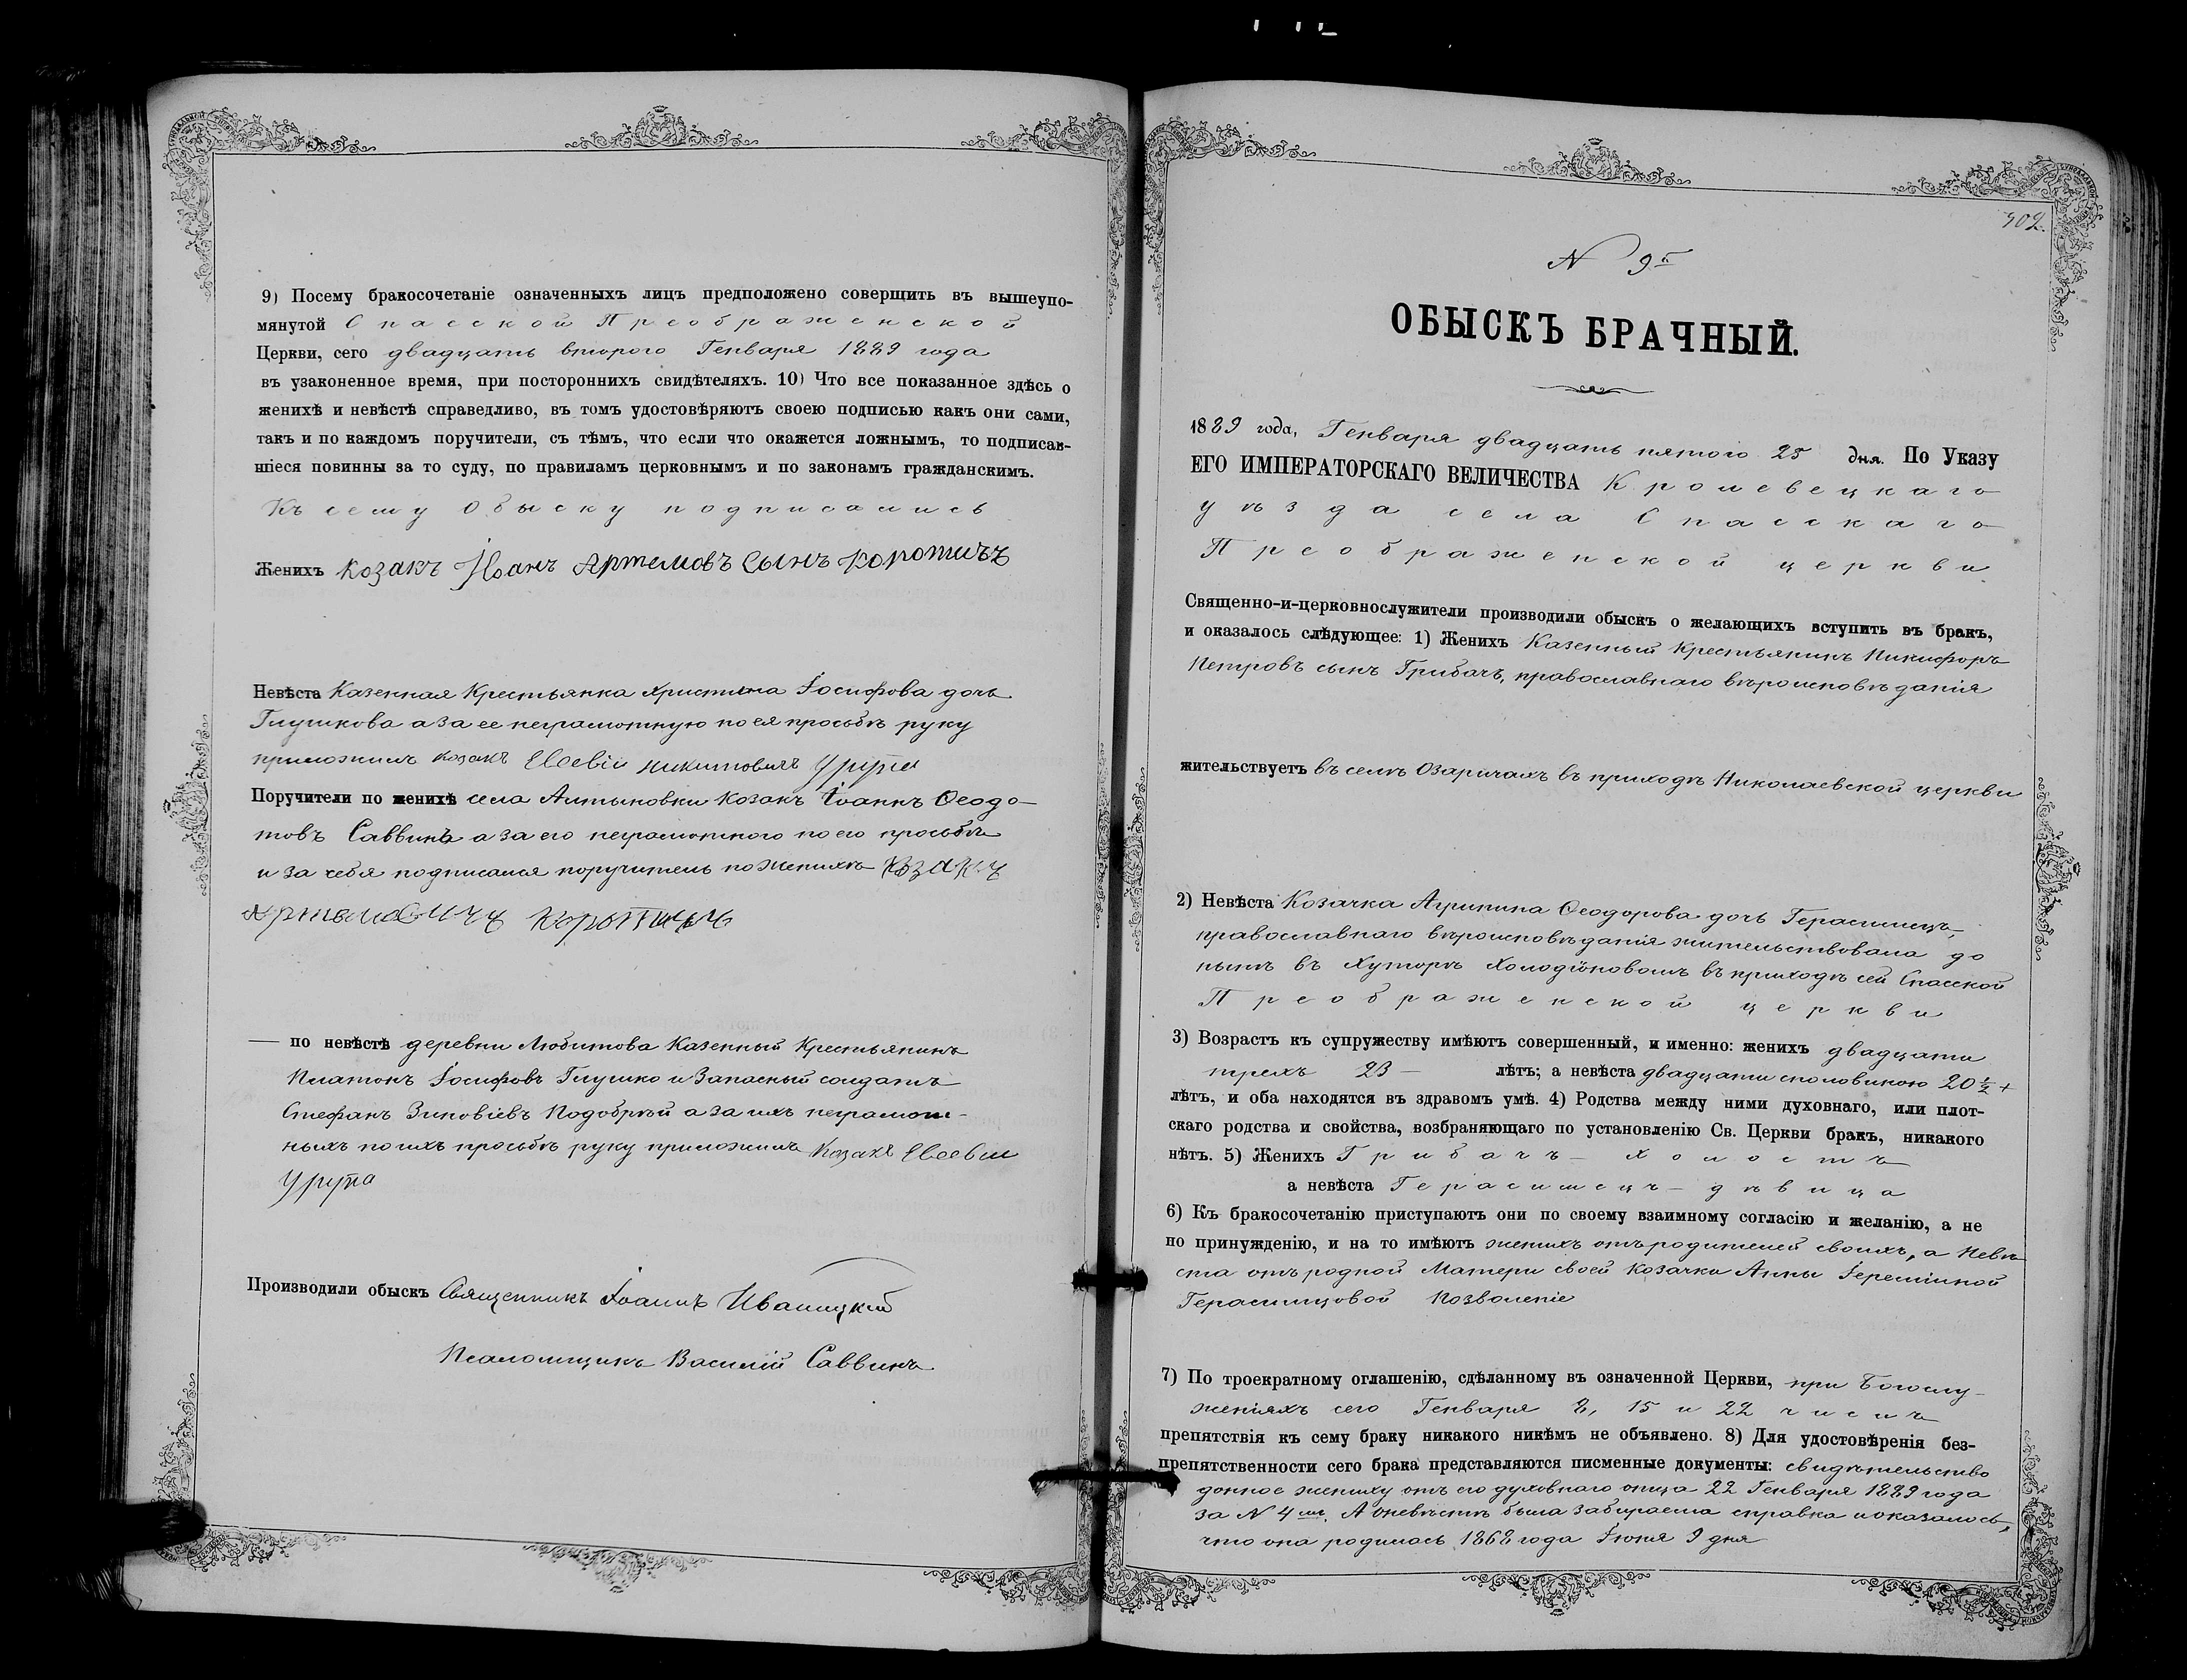 9) Посему бракосочетаніе означенныхъ лицъ предположено совершить въ вышеупо-
мянутой Спасской Преображенской
Церкви, сего двадцать второго Генваря 1889 года
въ узаконенное время, при постороннихъ свидѣтеляхъ. 10) Что все показанное здѣсь о
женихѣ и невѣстѣ справедливо, въ томъ удостовѣряютъ своею подписью какъ они сами,
такъ и по каждомъ поручители, съ тѣмъ, что если что окажется ложнымъ, то подписав-
шіеся повинны за то суду, по правиламъ церковнымъ и по законамъ гражданскимъ.
Къ сему обыску подписались
Женихъ козакъ Іоанъ Артемовъ Сынъ Коротичъ
Невѣста Казенная Крестьянка Христина Іосифова дочь
Глушкова а за ее неграмотную по ея просьбѣ руку
приложилъ козакъ Евсевій Никитовичъ
Поручители по женихѣ села Алтыновки Козакъ Іоаннъ Ѳеодо-
товъ Саввинъ а за его неграмотного по его просьбѣ
и за себя подписался поручитель по женихѣ
Коротичъ
— по невѣстѣ деревни Любитова Казенный Крестьянинъ
Платонъ Іосифовъ Глушко и Запасный солдатъ
Стефанъ Зиновіевъ Подобрѣй а за ихъ неграмот-
ныхъ по ихъ просьбѣ руку приложилъ Козакъ Евсевій
Производили обыскъ Священникъ Іоаннъ Иваницкій
Псаломщикъ Василій Саввинъ
402.
N 9й
ОБЫСКЪ БРАЧНЫЙ.
1889 года, Генваря двадцать пятого 25 дня. По Указу
ЕГО ИМПЕРАТОРСКАГО ВЕЛИЧЕСТВА Кролевецкаго
уѣзда села Спасскаго
Преображенской церкви
Священно-и-церковнослужители производили обыскъ о желающихъ вступить въ бракъ,
и оказалось слѣдующее: 1) Женихъ Казенный Крестьянинъ Никифоръ
Петровъ сынъ Грибачъ, православнаго вѣроисповѣданія
жительствуетъ въ селѣ Озаричахъ въ приходѣ Николаевской церкви
2) Невѣста Козачка Агрипина Ѳеодорова дочь Герасимецъ,
православнаго вѣроисповѣданія жительствовала до
нынѣ въ Хуторѣ Холодіоновомъ въ приходѣ сей Спасской
Преображенской церкви
3) Возрастъ къ супружеству имѣютъ совершенный, и именно: женихъ двадцати
трехъ 23 — лѣтъ; а невѣста двадцати споловиною 20 1/2 +
лѣтъ, и оба находятся въ здравомъ умѣ. 4) Родства между ними духовнаго, или плот-
скаго родства и свойства, возбраняющаго по установленію Св. Церкви бракъ, никакого
нѣтъ. 5) Женихъ Грибачъ — холостъ
а невѣста Герасимецъ — дѣвица
6) Къ бракосочетанію приступаютъ они по своему взаимному согласію и желанію, а не
по принужденію, и на то имѣютъ женихъ отъ родителей своихъ, а Невѣ-
ста отъ родной Матери своей Козачки Анны Іереміиной
Герасимцовой Позволеніе
7) По троекратному оглашенію, сдѣланному въ означенной Церкви, при Богослу-
женіяхъ сего Генваря 8, 15 и 22 числъ
препятствія къ сему браку никакого никѣмъ не объявлено. 8) Для удостовѣренія без-
препятственности сего брака представляются писменные документы: свидѣтельство
донное жениху отъ его духовнаго отца 22 Генваря 1889 года
за N 4мъ. А оневѣстѣ была забираема справка и оказалось,
что она родилась 1868 года Іюня 9 дня